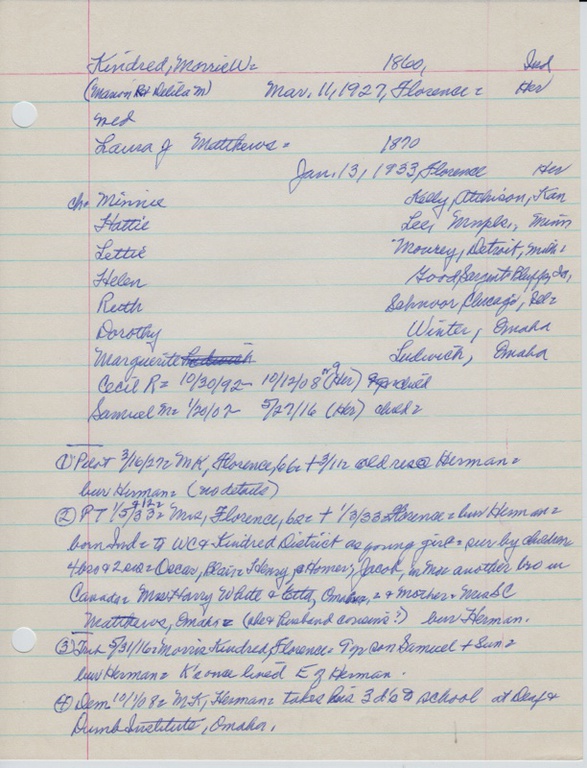 Kindred, Morris W= 1860, Ind
(Marion & Delila M) Mar. 11, 1927, Florence= Her
wed
Laura J Matthews= 1870
Jan. 13, 1933, Florence Her
ch. Minnie Kelly, Atchison, Kan
Hattie Lee, Mnpls., Minn
Lettie Mowrey, Detroit, Mich.
Helen Good, Sargents Bluffs, Ia,
Ruth Sahnvor, Chicago, Ill=
Dorothy Winter, Omaha
Marguerite Ludwich, Omaha
Cecil R= 10/30/92- 10/12/08 (Her) child
Samuel M= 1/20/02- 5/27/16 (Her) child=
① Pilot 3/16/27= MK, Florence, 66= + 3/11= old res @ Herman=
bur Herman= (no details)
② PT 1/5/33= Mrs, Florence, 62= + 1/3/33 Florence= bur Herman=
born Ind= to WC & Kindred District as young girl= sur by children
4 bro & 2 sis= Oscar, Blair= Henry, Homer, Jacob, in Mo= another bro in
Canada= Mrs Harry White & Etta, Omaha, = & Mother= Mrs B C
Matthews, Omaha= (she & husband cousins?) bur Herman.
③ Trib 5/31/16= Morris Kindred, Florence= son Samuel + Sun=
bur Herman= K's once lived E of Herman.
④ Dem 10/1/08= MK, Herman= takes his 3 d's to school at Deaf &
Dumb Institute, Omaha.